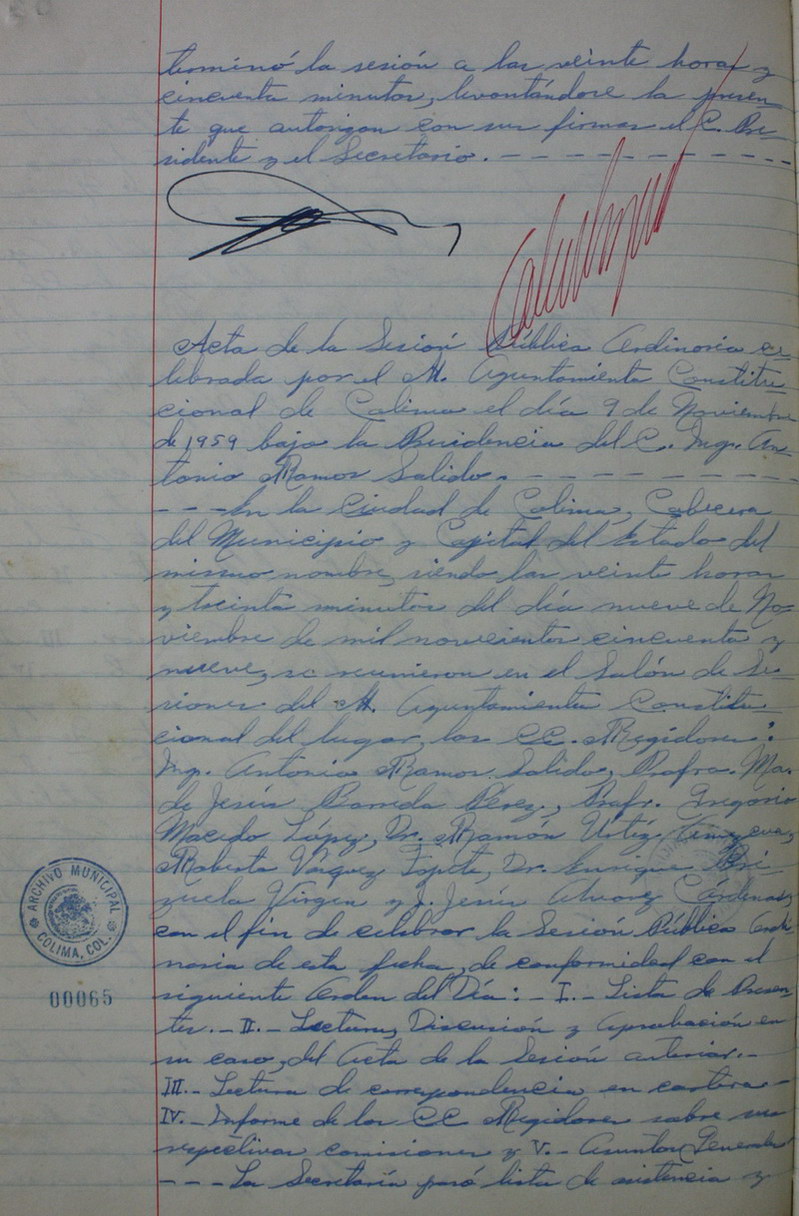 terminó la sesión a las veinte horas y
cincuenta minutos, levantándose la presen-
te que autorizan con sus firmas el C. Pre-
sidente y el Secretario. - - - - - - - - - -
Acta de la Sesión Pública Ordinaria ce-
lebrada por el H. Ayuntamiento Constitu-
cional de Colima el día 9 de Noviembre
de 1959 bajo la Presidencia del C. Ing. An-
tonio Ramos Salido. - - - - - - - - -
- - - En la Ciudad de Colima, Cabecera
del Municipio y Capital del Estado del
mismo nombre, siendo las veinte horas
y treinta minutos del día nueve de No-
viembre de mil novecientos cincuenta y
nueve, se reunieron en el Salón de Se-
siones del H. Ayuntamiento Constitu-
cional del lugar, los CC. Regidores:
Ing. Antonio Ramos Salido, Profra. Ma.
de Jesús Barreda Pérez, Profr. Gregorio
Macedo López, Dr. Ramón Urtíz
Roberto Vázquez Topete, Dr. Enrique Bri-
zuela Virgen y J. Jesús Alvarez Cárdenas,
con el fin de celebrar la Sesión Pública Ordi-
naria de esta fecha, de conformidad con el
siguiente Orden del Día: - I. - Lista de Presen-
tes. - II. - Lectura, Discusión y Aprobación en
su caso, del Acta de la Sesión anterior. -
III. - Lectura de correspondencia en cartera -
IV. - Informe de los CC Regidores sobre sus
respectivas comisiones y V. - Asuntos Generales
- - - La Secretaría pasó lista de asistencia y
ARCHIVO MUNICIPAL
COLIMA, COL.
00065